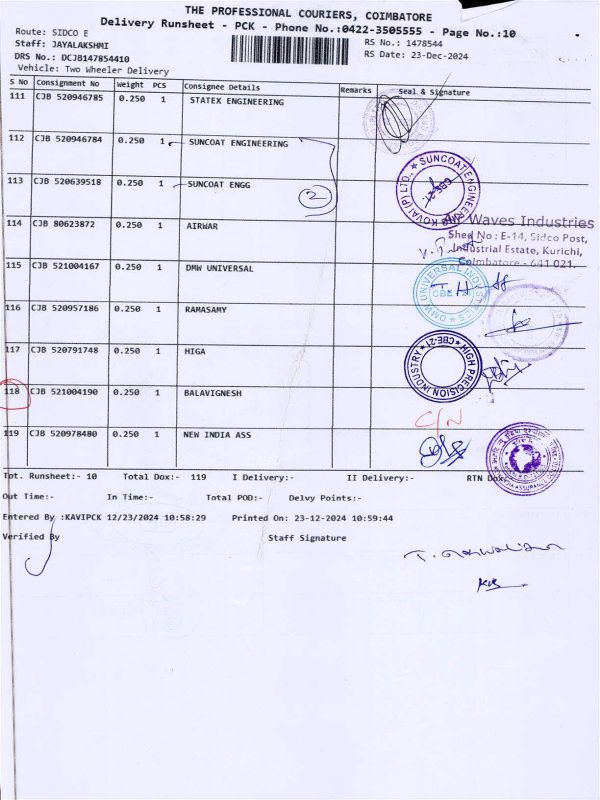 THE PROFESSIONAL COURIERS, COIMBATORE
Delivery Runsheet - PCK - Phone No.:0422-3505555 - Page No.:10
Route: SIDCO E
Staff: JAYALAKSHMI
RS No.: 1478544
DRS No.: DCJB147854410
RS Date: 23-Dec-2024
Vehicle: Two Wheeler Delivery
S No Consignment No Weight PCS Consignee Details Remarks Seal & Signature
111 CJB 520946785 0.250 1 STATEX ENGINEERING
112 CJB 520946784 0.250 1 SUNCOAT ENGINEERING
113 CJB 520639518 0.250 1 SUNCOAT ENGG
2
SUNCOAT ENGINEERING KOVAI (P) LTD.,
CBE-21.
114 CJB 80623872 0.250 1 AIRWAR
Waves Industries
Shed No : E-14, Sidco Post,
Industrial Estate, Kurichi,
Coimbatore - 641 021.
115 CJB 521004167 0.250 1 DMW UNIVERSAL
DMW UNIVERSAL INDUSTRIES
CBE
116 CJB 520957186 0.250 1 RAMASAMY
117 CJB 520791748 0.250 1 HIGA
HIGH PRECISION INDUSTRY
CBE-21
118 CJB 521004190 0.250 1 BALAVIGNESH
C/N
119 CJB 520978480 0.250 1 NEW INDIA ASS
Tot. Runsheet:- 10 Total Dox:- 119 I Delivery:- II Delivery:- RTN Dox
Out Time:- In Time:- Total POD:- Delvy Points:-
Entered By :KAVIPCK 12/23/2024 10:58:29 Printed On: 23-12-2024 10:59:44
Verified By Staff Signature